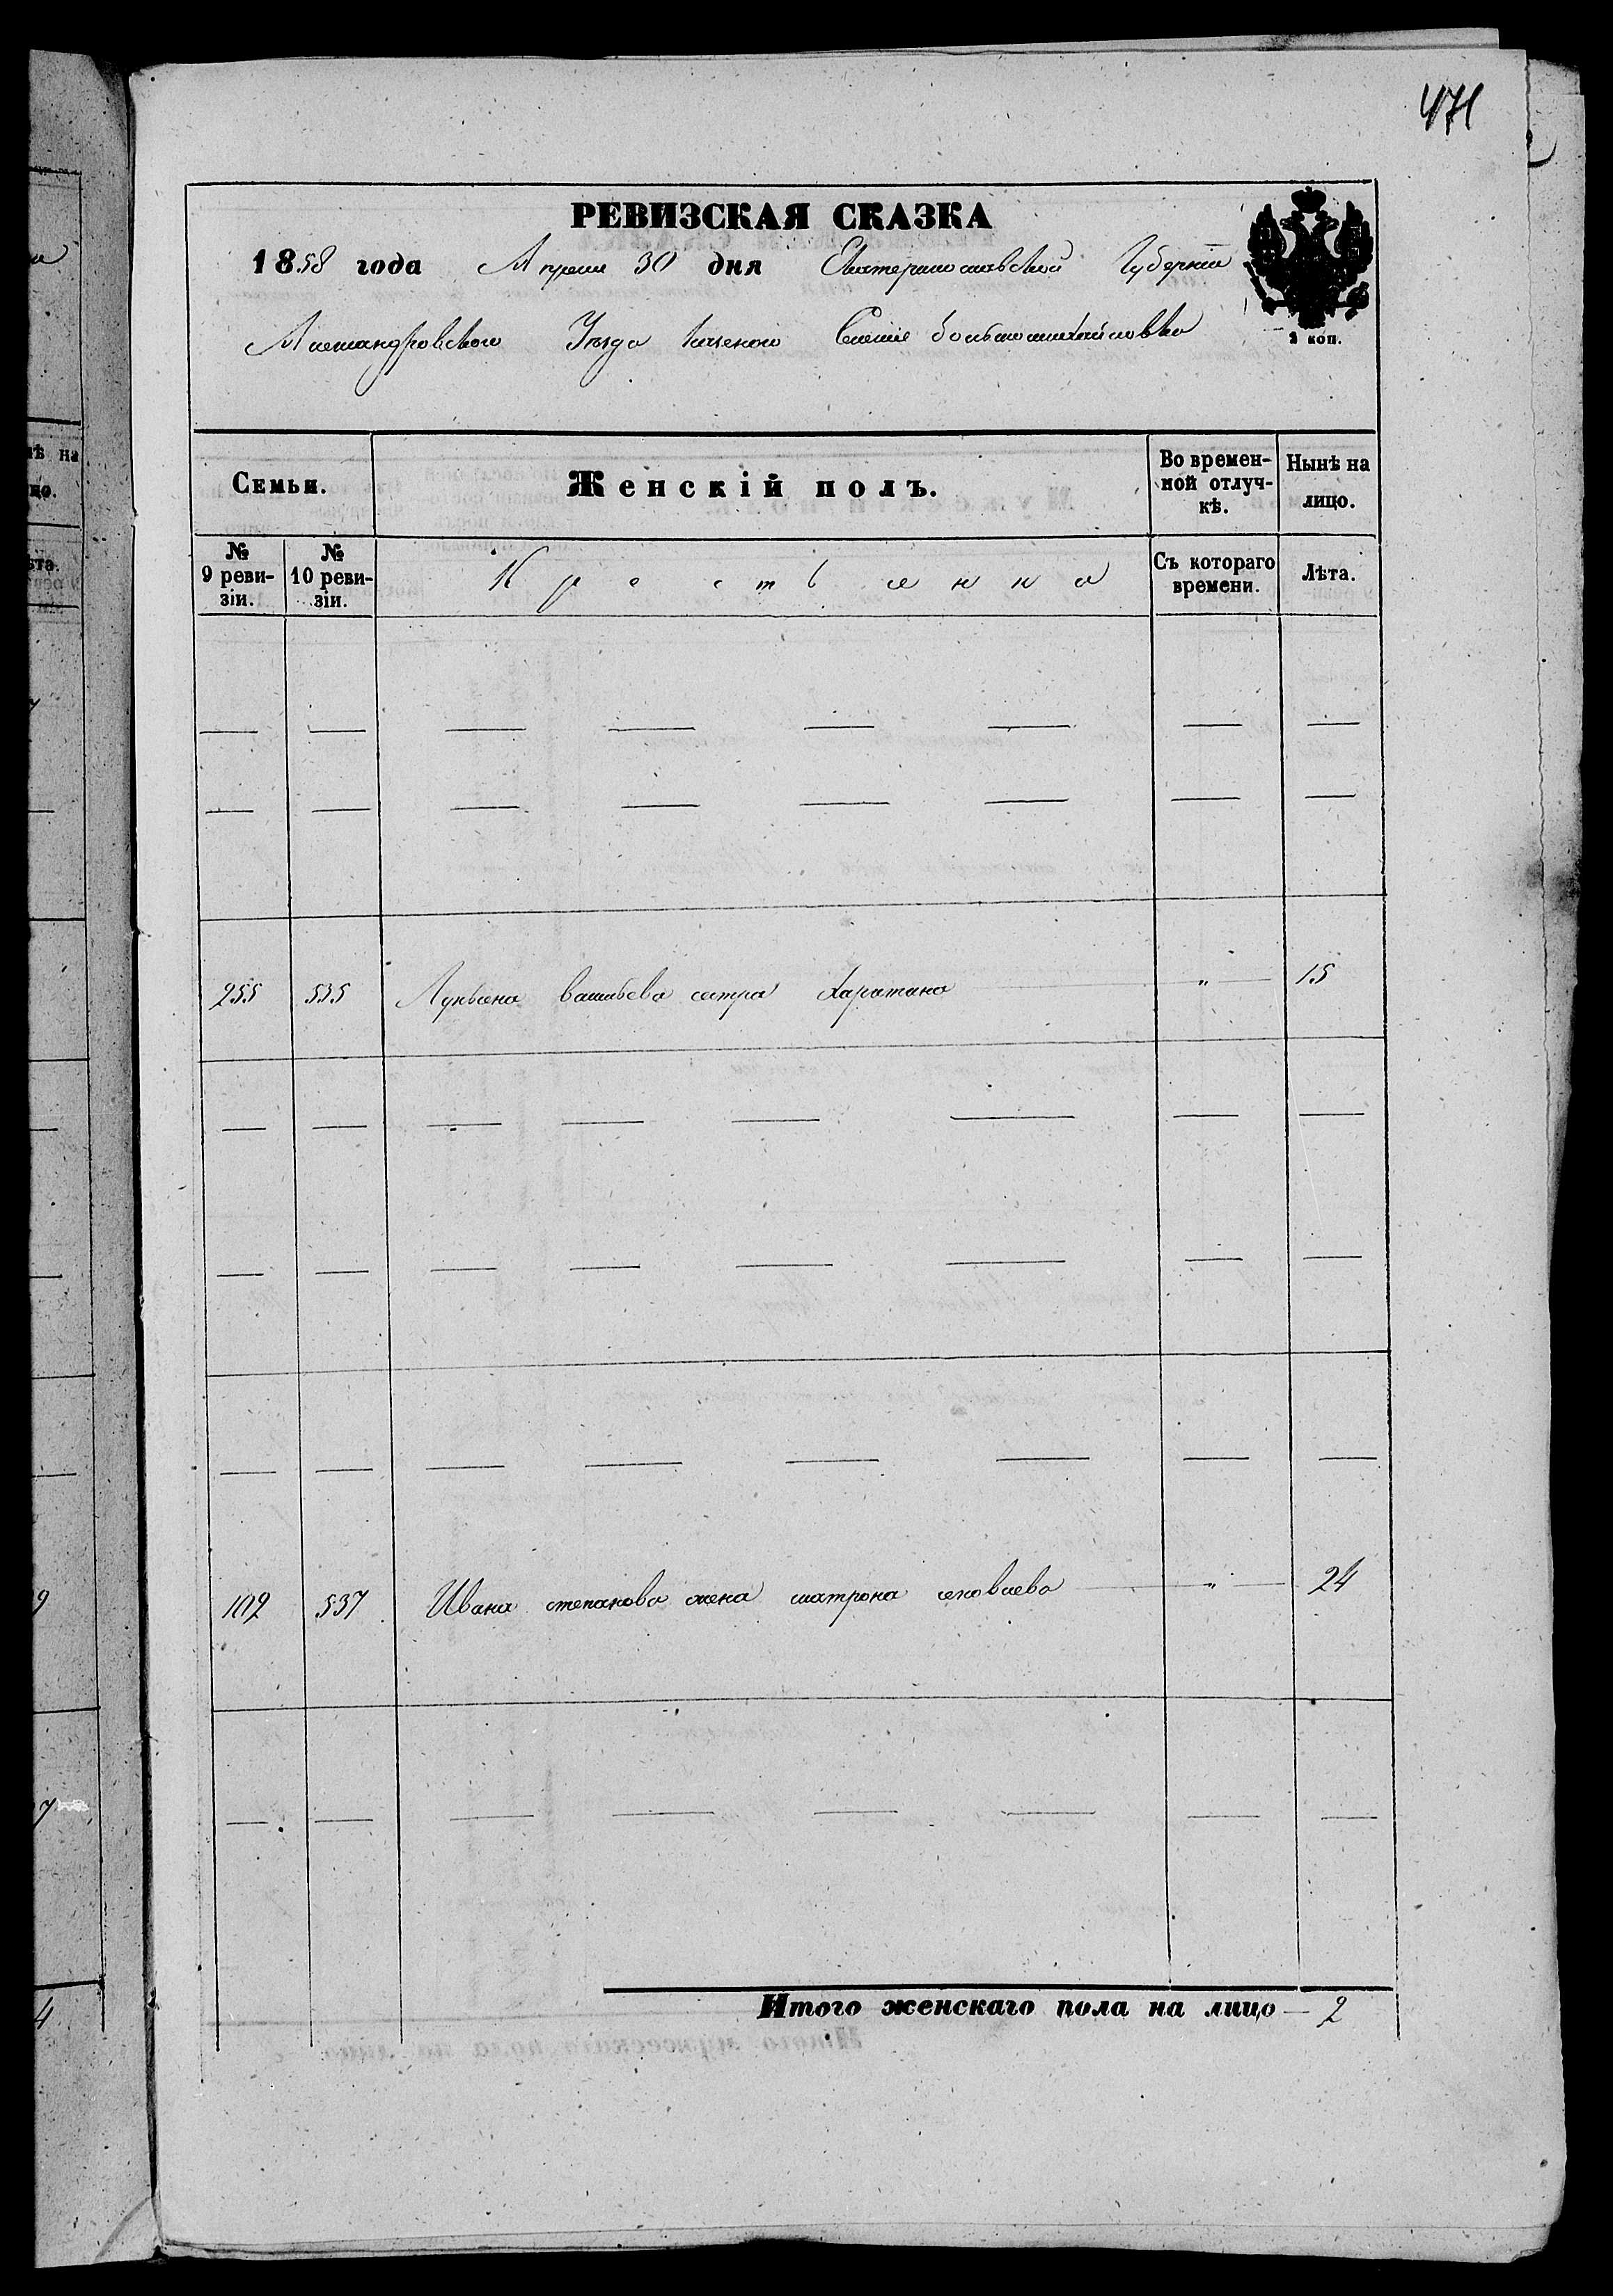 471
РЕВИЗСКАЯ СКАЗКА
1858 года Апреля 30 дня Екатеринославской Губернiи
Александровского Уезда Казеного Селенiе большемихайловка
2 коп.
Семьи.
Женскiй полъ.
Во времен-
ной отлуч-
кѣ.
Нынѣ на
лицо.
№
9 реви-
зiи.
№
10 реви-
зiи.
Съ котораго
времени.
Лѣта.
255 535 Лукьяна васильева сестра Харитина " 15
102 537 Ивана степанова жена матрона яковлева " 24
Итого женскаго пола на лицо — 2